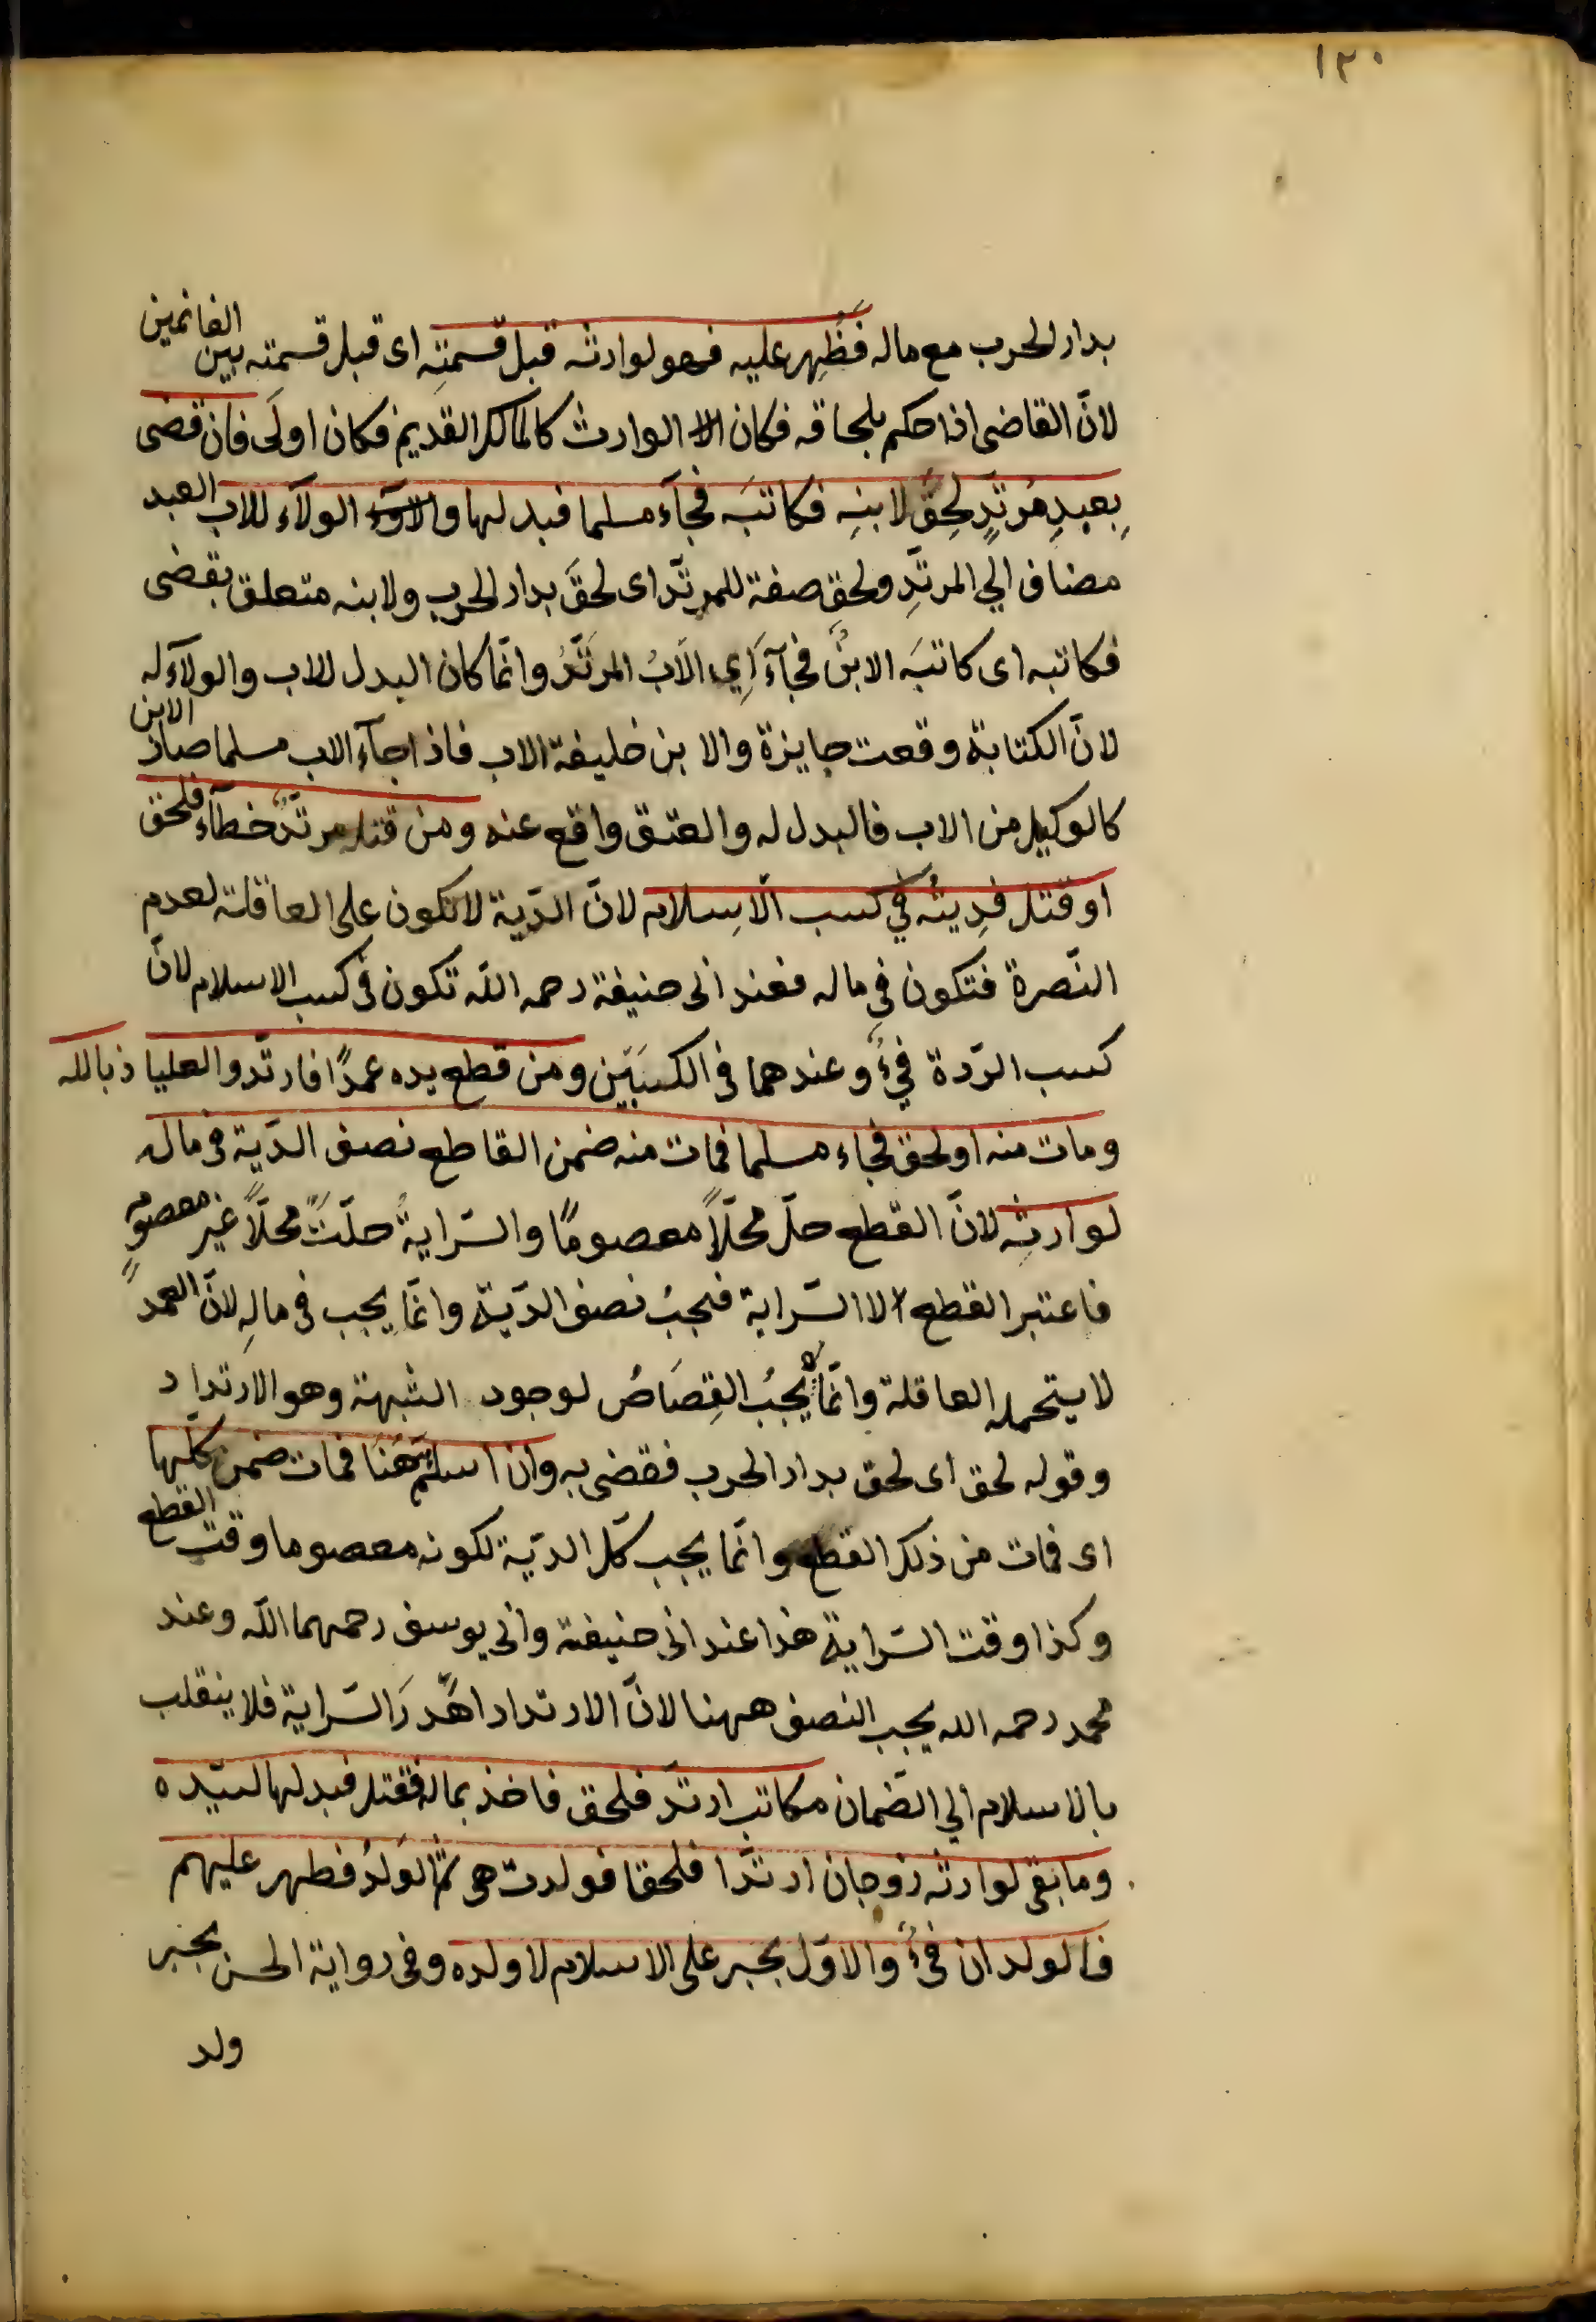 ١٢٠
بدار الحرب مع ماله فظُهِر عليه فهو لوارثه قبل قسمتِه اى قبل قسمته بين الغانمين
لانّ القاضى اذا حكم بلحاقه فكان الا الوارث كالمالك القديم فكان اولَى فان قضى
بِعبدِ مُرتدٍّ لَحِقَ لابنِه فكاتبَه فجآءَ مسلما فبدلها والاوّء الولآء للاب العبد
مضاف الي المرتدِّ ولحق صفة للمرتدّ اى لحقَ بدار الحرب ولابنه متعلق بقضى
فكاتبه اى كاتبَه الابنُ فجآءَ اَيِ الاَبُ المرتَدُّ وانّما كان البدل للاب والولآء له
لانّ الكتابة وقعت جايزة والابن خليفة الاب فاذا جآء الاب مسلما صار الابن
كالوكيل من الاب فالبدل له والعتق واقع عنه ومن قتله مرتدٌّ خطآءً فلحق
او قتل فدِيتُه في كسب الاسلام لانّ الدّية لا تكون على العاقلة لعدم
النّصرة فتكون في ماله فعند ابى حنيفة رحمه الله تكون فى كسب الاسلام لانّ
كسب الرّدة فيءٌ وعندهما فى الكسبَين ومن قطع يده عمدًا فارتدّ والعياذ بالله
ومات منه او لحق فجاء مسلما فمات منه ضمن القاطع نصف الدّية فى ماله
لوارثِه لانّ القطع حلّ محلّاً معصومًا والسّرايةُ حلّتْ محلّاً غير معصومٍ
فاعتبر القطع لا السّراية فيجبُ نصف الدّية وانّما يجب فى مالِه لانّ العمد
لا يتحمله العاقلة وانّما لا يجبُ القِصَاصُ لوجود الشبهة وهو الارتداد
وقوله لحق اى لحق بدار الحرب فقضى به وان اسلم ههنا فمات ضمن كلّها
اى فمات من ذلك القطع وانّما يجب كلّ الدّية لكونه معصوما وقت القطع
وكذا وقت السّراية هذا عند ابى حنيفة وابى يوسف رحمهما الله وعند
محمد رحمه الله يجب النصف ههنا لانّ الارتداد اهْدرَ السّراية فلا ينقلب
بالاسلام الي الضّمان مكاتب ارتدّ فلحق فاخذ بماله فقتل فبدلها لسيّده
وما بقى لوارثه زوجان ارتدّا فلحقا فولدت هى ثمّ الوَلدُ فظهر عليهم
فالولدان فيءٌ والاوّل يجبر على الاسلام لا ولده وفى رواية الحسن يجبر
ولد